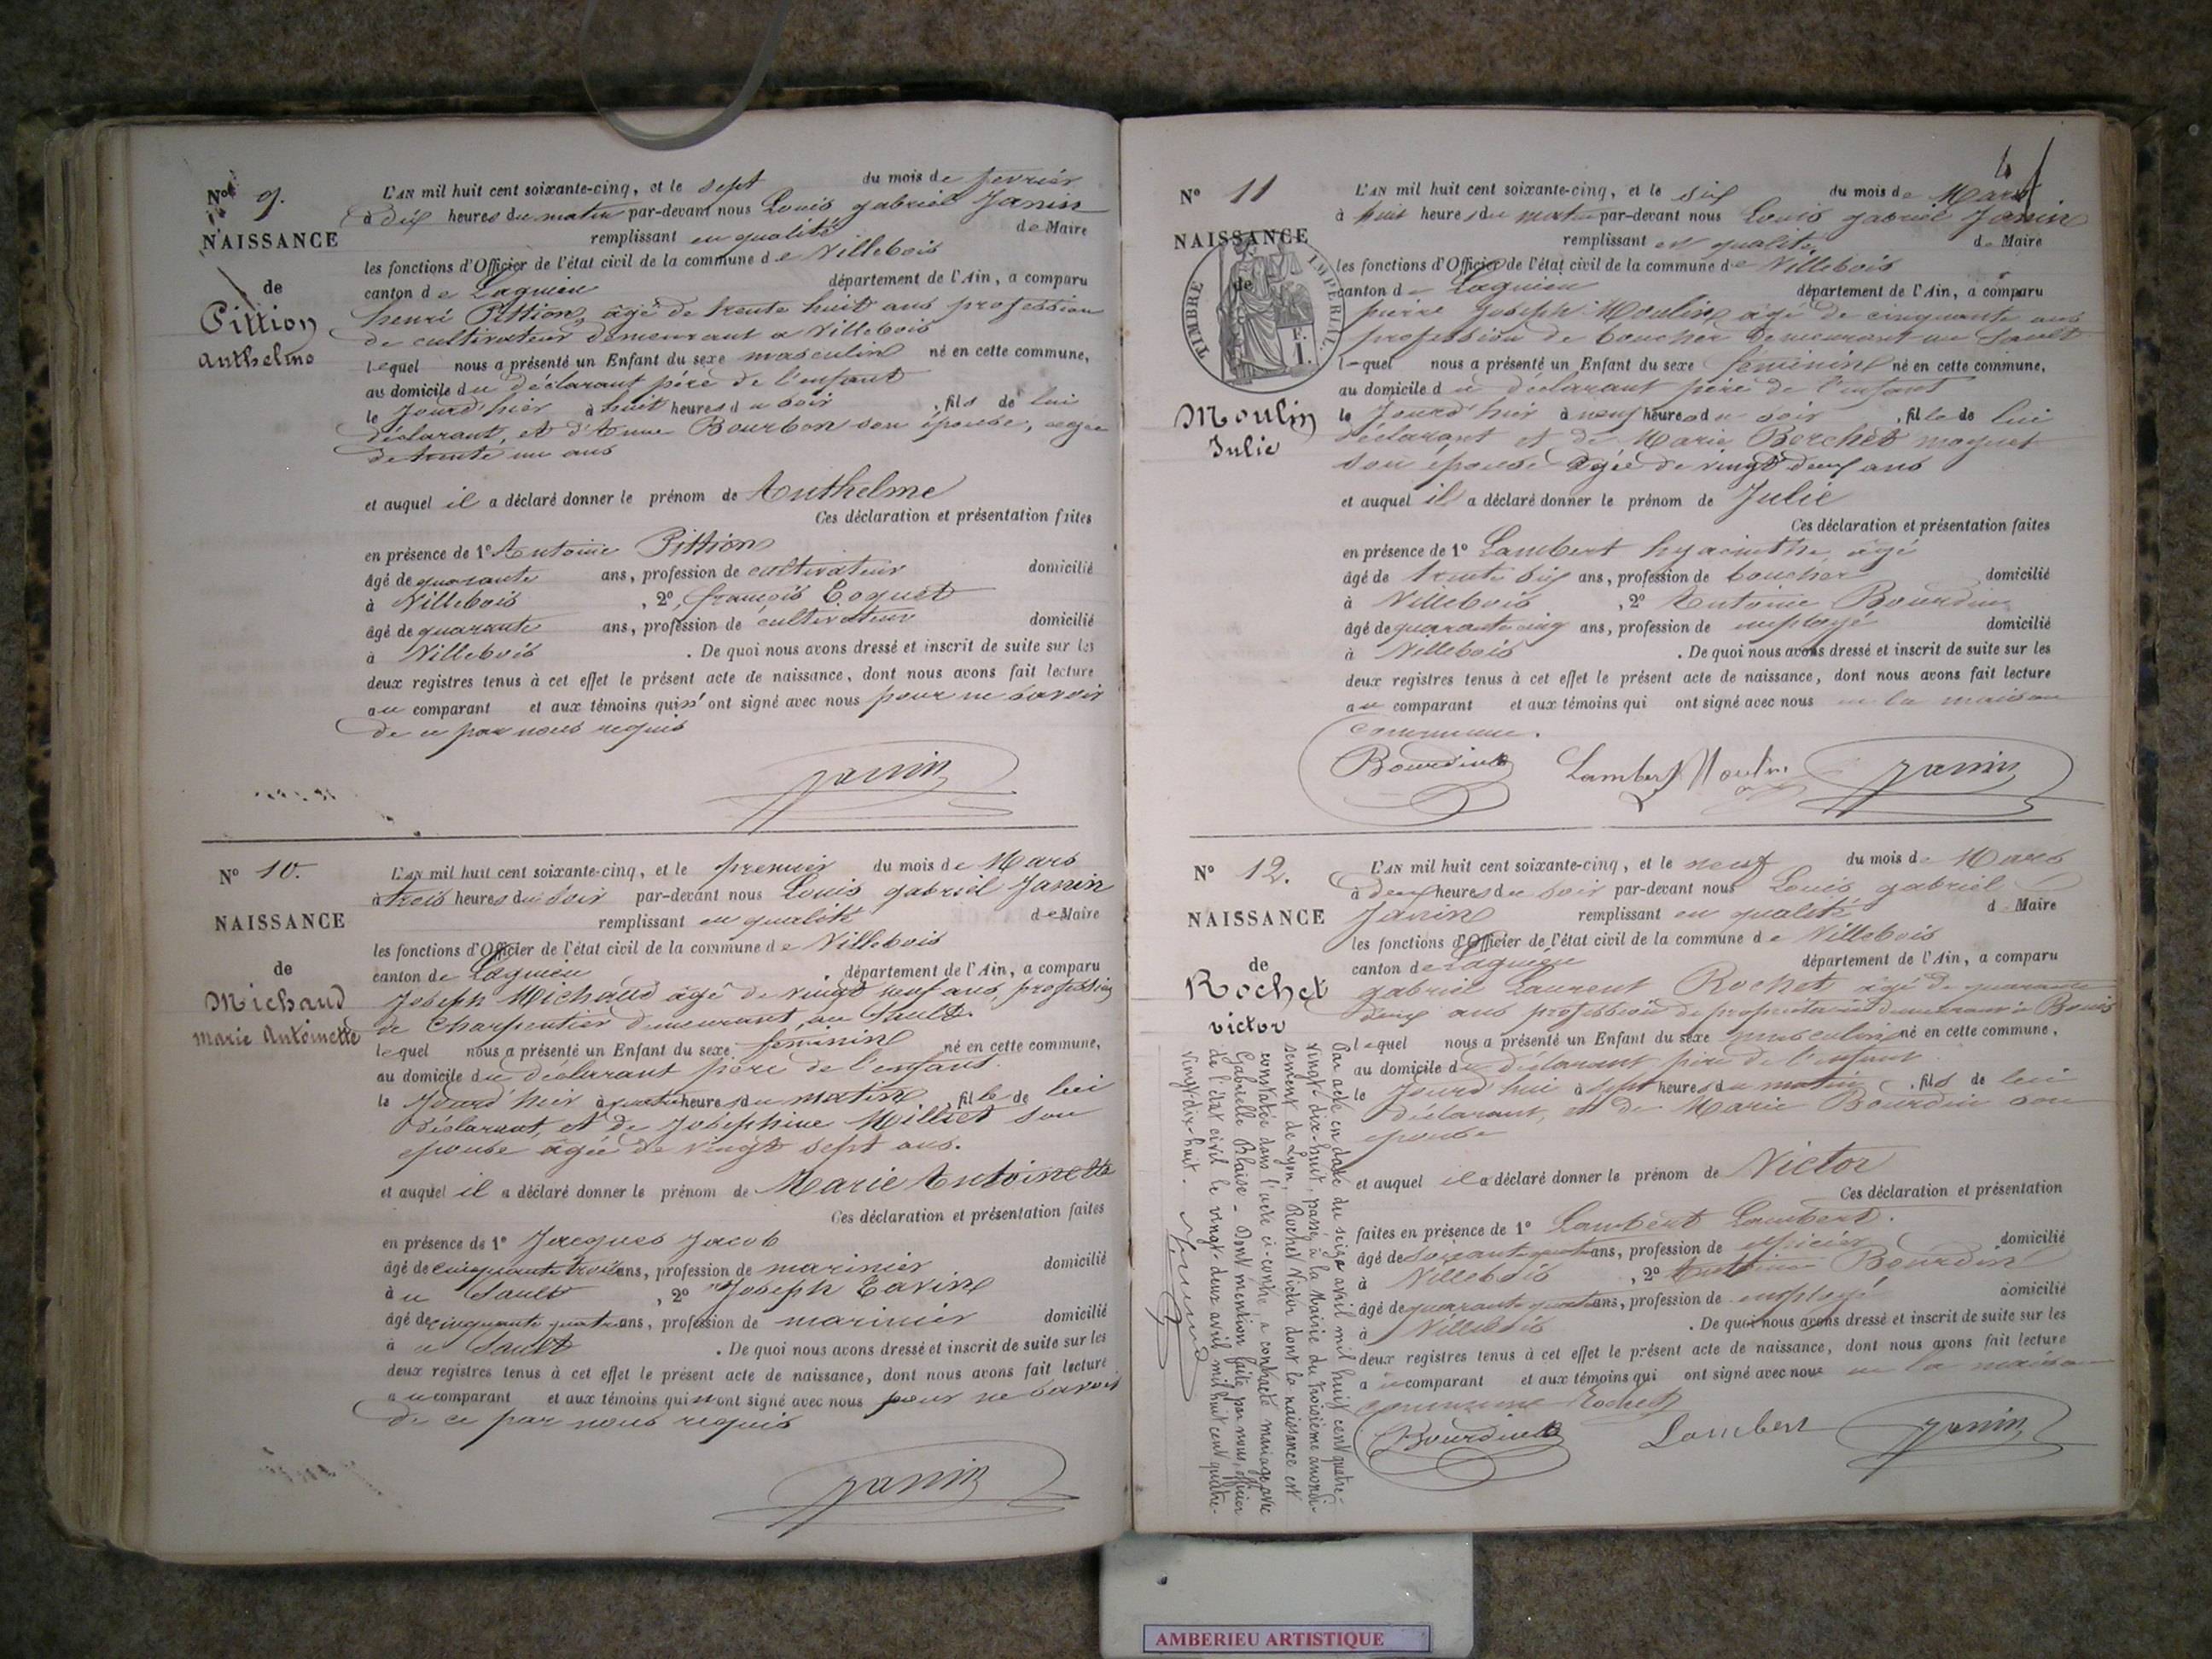 N° 9.
NAISSANCE
de
Pittion
Anthelme
L'AN mil huit cent soixante-cinq, et le sept du mois de février
à dix heures du matin par-devant nous Louis gabriel Janin
remplissant en qualité de Maire
les fonctions d'Officier de l'état civil de la commune de Villebois
canton de Lagnieu département de l'Ain, a comparu
henri Pittion, âgé de trente huit ans profession
de cultivateur demeurant a Villebois
lequel nous a présenté un Enfant du sexe masculin né en cette commune,
au domicile du déclarant père de l'enfant
le Jourd'hier à huit heures du soir, fils de lui
déclarant, et d'Anne Bourbon son épouse, agée
de trente un ans
et auquel il a déclaré donner le prénom de Anthelme
Ces déclaration et présentation faites
en présence de 1° Antoine Pittion
âgé de quarante ans, profession de cultivateur domicilié
à Villebois, 2° françois Coquet
âgé de quarante ans, profession de cultivateur domicilié
à Villebois. De quoi nous avons dressé et inscrit de suite sur les
deux registres tenus à cet effet le présent acte de naissance, dont nous avons fait lecture
au comparant et aux témoins qui n'ont signé avec nous pour ne savoir
de ce par nous requis
Janin
N° 10.
NAISSANCE
de
Michaud
Marie Antoinette
L'AN mil huit cent soixante-cinq, et le premier du mois de Mars
à trois heures du soir par-devant nous Louis gabriel Janin
remplissant en qualité de Maire
les fonctions d'Officier de l'état civil de la commune de Villebois
canton de Lagnieu département de l'Ain, a comparu
Joseph Michaud âgé de vingt neuf ans, profession
de Charpentier demeurant au Sault.
lequel nous a présenté un Enfant du sexe féminin né en cette commune,
au domicile du déclarant père de l'enfant.
le Jourd'hier à quatre heures du matin, fille de lui
déclarant, et de Joséphine Milliet son
epouse âgée de vingt sept ans.
et auquel il a déclaré donner le prénom de Marie Antoinette
Ces déclaration et présentation faites
en présence de 1° Jacques Jacob
âgé de cinquante trois ans, profession de marinier domicilié
à u Sault, 2° Joseph Tavin
âgé de cinquante quatre ans, profession de marinier domicilié
à u Sault. De quoi nous avons dressé et inscrit de suite sur les
deux registres tenus à cet effet le présent acte de naissance, dont nous avons fait lecture
au comparant et aux témoins qui n ont signé avec nous pour ne savoir
de ce par nous requis
Janin
N° 11
NAISSANCE
de
TIMBRE IMPÉRIAL
F. 1.
Moulin
Julie
L'AN mil huit cent soixante-cinq, et le six du mois de Mars
à huit heures du matin par-devant nous Louis gabriel Janin
remplissant en qualité de Maire
les fonctions d'Officier de l'état civil de la commune de Villebois
canton de Lagnieu département de l'Ain, a comparu
pierre Joseph Moulin âgé de cinquante ans
profession de boucher demeurant au Sault
lequel nous a présenté un Enfant du sexe feminin né en cette commune,
au domicile du déclarant père de l'enfant
le Jourd'hier à neuf heures du soir, fille de lui
déclarant et de Marie Berchet maquet
son épouse âgée de vingt deux ans
et auquel il a déclaré donner le prénom de Julie
Ces déclaration et présentation faites
en présence de 1° Lambert hyacinthe, âgé
âgé de trente six ans, profession de boucher domicilié
à Villebois, 2° Antoine Bourdin
âgé de quarante cinq ans, profession de employé domicilié
à Villebois. De quoi nous avons dressé et inscrit de suite sur les
deux registres tenus à cet effet le présent acte de naissance, dont nous avons fait lecture
au comparant et aux témoins qui ont signé avec nous en la maison
commune.
Bourdin Lambert Moulin Janin
N° 12.
NAISSANCE
de
Rochet
victor
L'AN mil huit cent soixante-cinq, et le neuf du mois de Mars
à deux heures du soir par-devant nous Louis gabriel
Janin remplissant en qualité d Maire
les fonctions d'Officier de l'état civil de la commune de Villebois
canton de Lagnieu département de l'Ain, a comparu
gabriel Laurent Rochet âgé de quarante
deux ans profession de propriétaire demeurant à Bouis
lequel nous a présenté un Enfant du sexe masculin né en cette commune,
au domicile du déclarant père de l'enfant
le Jourd'hui à sept heures du matin, fils de lui
déclarant, et de Marie Bourdin son
epouse
et auquel il a déclaré donner le prénom de Victor
Ces déclaration et présentation
faites en présence de 1° Lambert Lambert.
âgé de soixante quatre ans, profession de épicier domicilié
à Villebois, 2° Antoine Bourdin
âgé de quarante quatre ans, profession de employé domicilié
à Villebois. De quoi nous avons dressé et inscrit de suite sur les
deux registres tenus à cet effet le présent acte de naissance, dont nous avons fait lecture
au comparant et aux témoins qui ont signé avec nous en la maison
commune Rochet
Bourdin Lambert Janin
Par acte en date du seize avril mil huit cent quatre-
vingt-dix-huit, passé à la Mairie du troisième arrondis-
sement de Lyon, Rochet Victor dont la naissance est
constatée dans l'acte ci-contre, a contracté mariage avec
Gabrielle Blaise - Dont mention faite par nous, officier
de l'état civil le vingt-deux avril mil huit cent quatre-
vingt-dix-huit.
AMBERIEU ARTISTIQUE